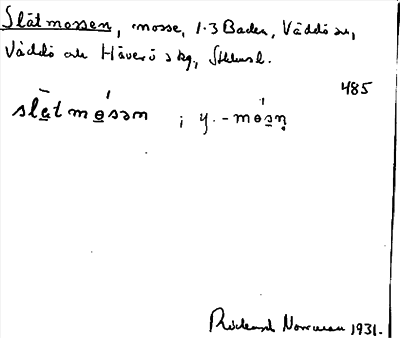 Slätmossen, mosse, 1.3 Baden, Väddö sn,
Väddö och Häverö skg, Sthlms l.
485
slătmòsən ; y. -mòsn̥
Rickard Norrman 1931.